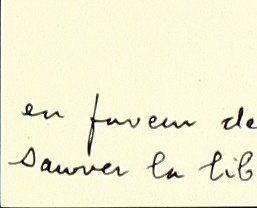 en faveur de
sauver la lib